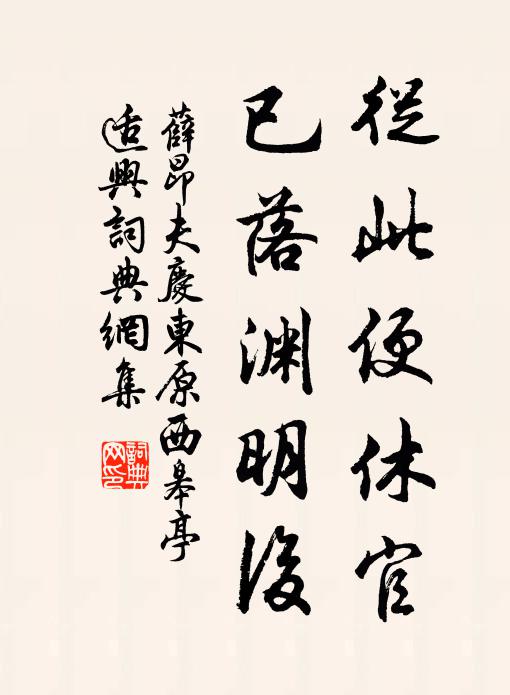 從此便休官
已落淵明後
薛昂夫慶東原西皋亭
适興詞典網集
詞典
网印